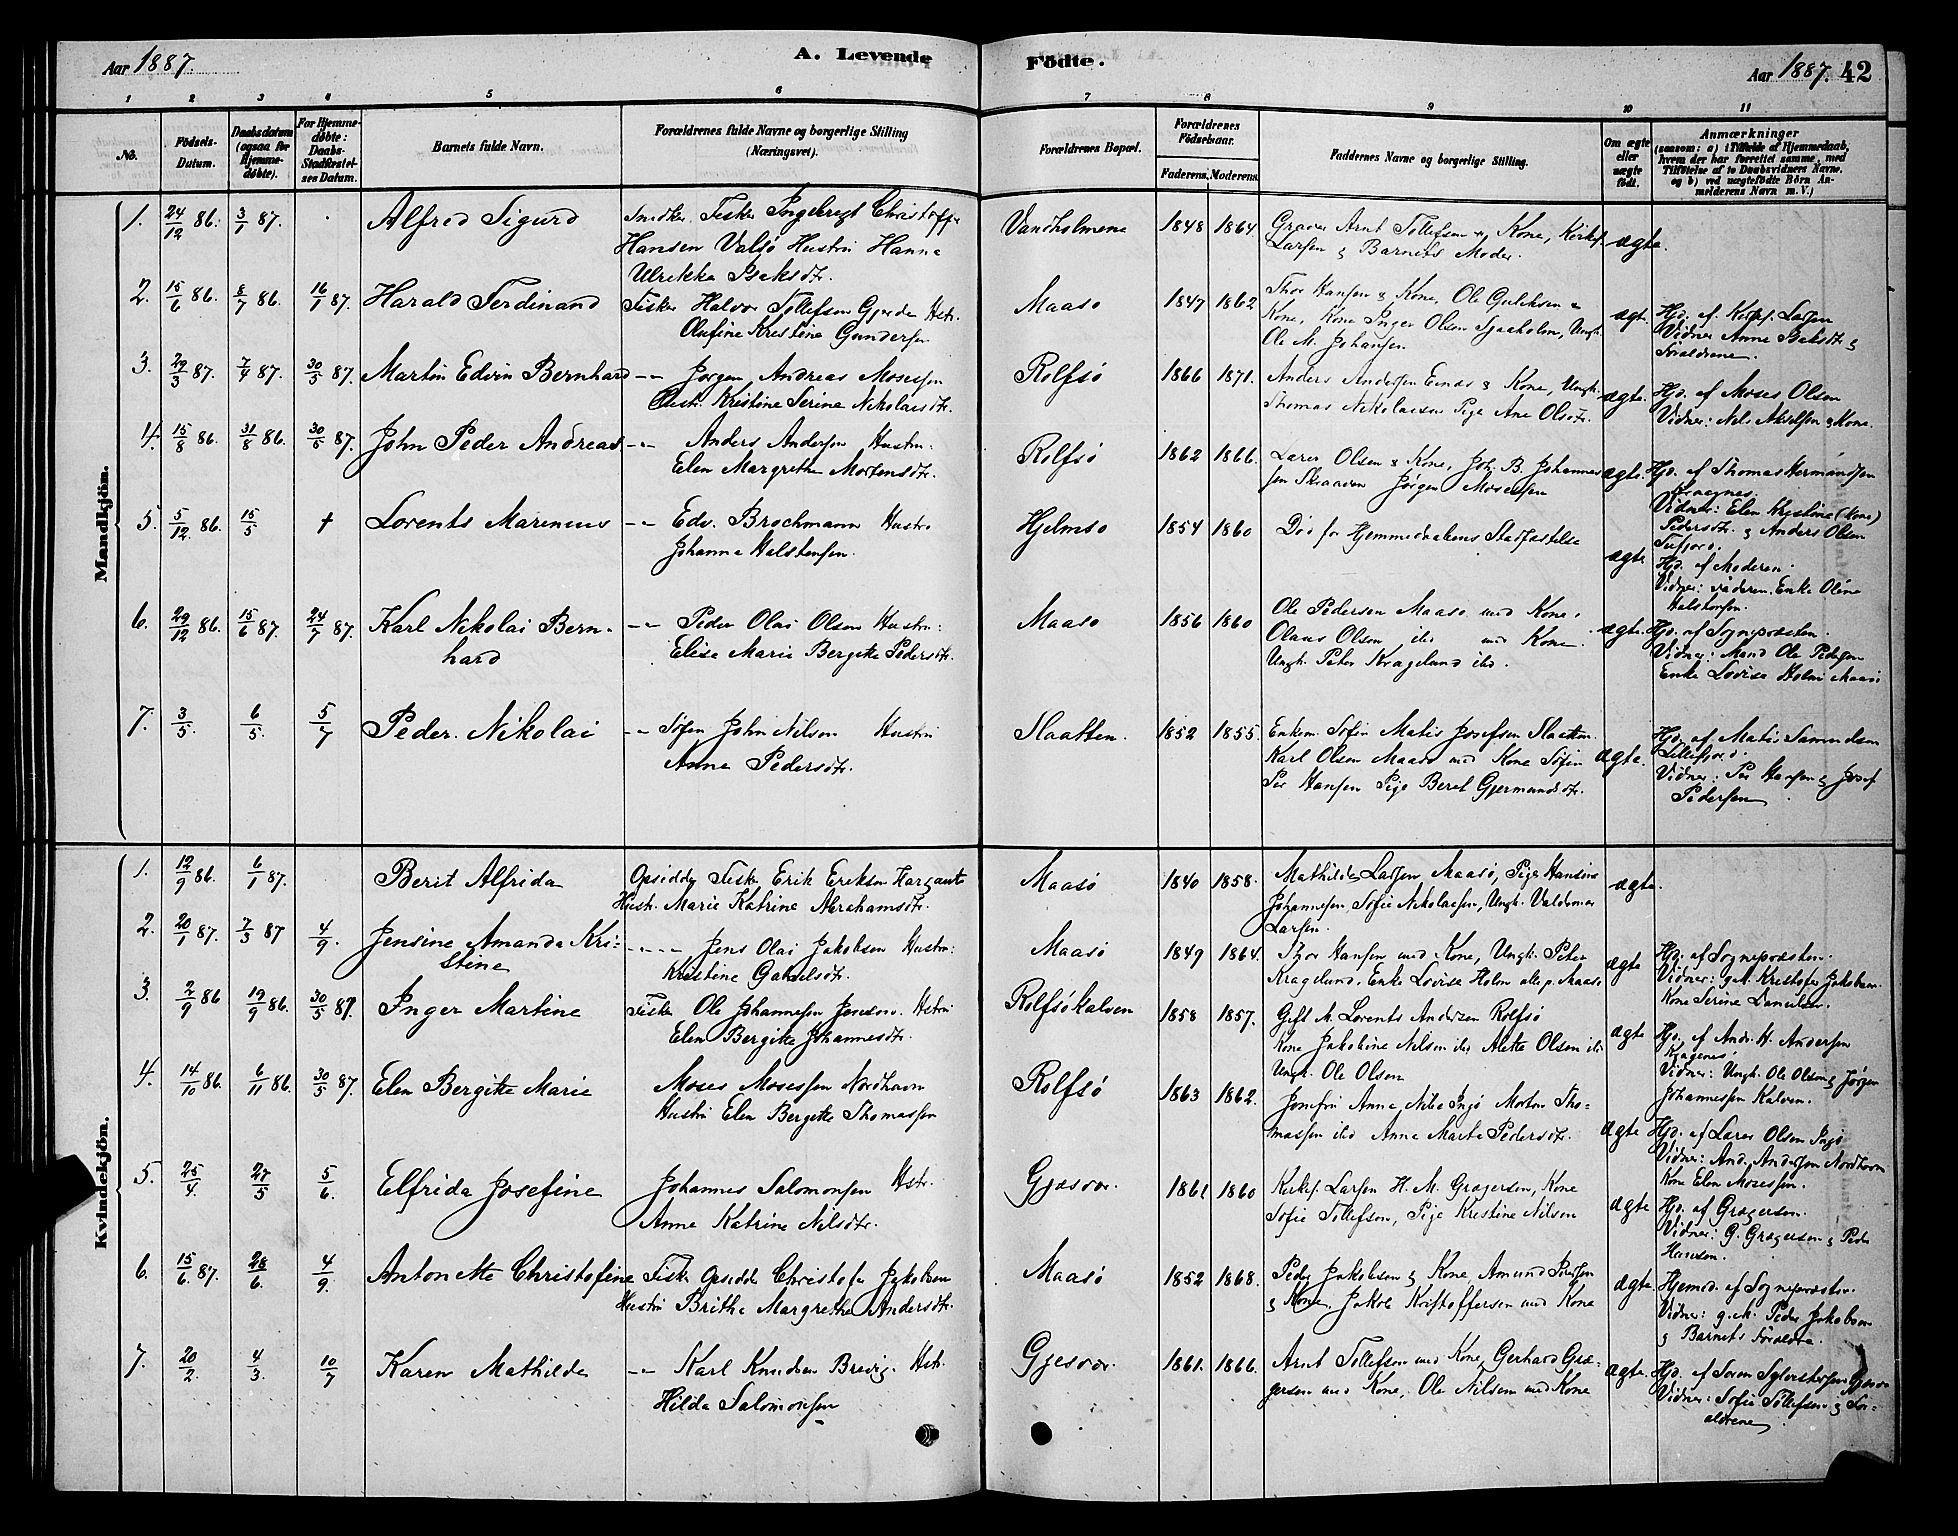 Aar 1887. A. Levende Fødte. Aar 1887. 42
1 2 3 4 5 6 7 8 9 10 11
No. Fødsels-Datum. Daabsdatum (ogsaa for Hjemmedøbte). For Hjemmedøbte: Daabs-Stadfæstelses Datum. Barnets fulde Navn. Forældrenes fulde Navne og borgerlige Stilling (Næringsvei). Forældrenes Bopæl. Forældrenes Fødselsaar. Faderens. Moderens. Faddernes Navne og borgerlige Stilling. Om ægte eller uægte født. Anmærkninger (saasom: a) Tilfælde af Hjemmedaab, hvem der har forrettet samme, med Tilføielse af to Daabsvidners Navne, og b) ved uægtefødte Børn Anmelderens Navn m. V.)
Mandkjön.
1. 24/12 86. 3/1 87. Alfred Sigurd Fisker Ingebrigt Christoffer Vandholmene 1848 1864 Arnt Tollefsen & Kone, Kirkes. ægte.
Hansen Valsö Hustru Hanna Larsen & Barnets Moder.
Ulrikka Isaksdtr.
2. 15/6 86. 8/7 86. 16/1 87. Harald Ferdinand Fisker Halvor Tollefsen Gjerde Hstr. Maasø 1847 1862 Thor Hansen & Kone, Ole Gulriksen & ægt. Hjd. af Kirkes. Larsen
Olufine Kristine Gundersen Kone, Kone Inger Olsen Ungk. Vidner Anne Isaksdtr &
Ole M. Johansen Forældrene.
3. 29/3 87. 7/4 87. 30/5 87. Martin Edvin Bernhard -"- Jørgen Andreas Mosessen Rolfsö 1866 1871. Anders Andersen & Kone, Ungk. ægte. Hjd. af Moses Olsen
Hustr. Kristine Serine Nikolaisdtr. Thomas Nikolaisen Pige Ane Olsdtr. Vidner: Nils Nilssen & Kone.
4. 15/8 86. 31/8 86. 30/5 87. John Peder Andreas -"- Anders Andersen Hustru Rolfsö 1862 1866. Lars Olsen & Kone, Joh. B. Johannes ægte. Hjd. af Thomas Hermandsen
Elen Margrethe Mortensdtr. sen Jørgen Mosessen Vidner: Elen Kristine (Kone)
Pedersdtr. & Anders Olsen
Tufjord.
5. 5/12 86. 15/5 † Lorents Marinius -"- Edv. Brochmann Hustru Hjelmsø 1854 1860 Død før Hjemmedaabens Stadfæstelse ægte Hjd. af Moderen.
Johanna Halstensen. Vidner: Faderen, Enke Oline
Halstensen.
6. 29/12 86. 15/6 87. 24/7 87. Karl Nikolai Bern- -"- Peder Olai Olsen Hustru: Maasø 1856 1860 Ole Pedersen Maasø med Kone, ægte. Hjd. af Sognepræsten.
hard Elise Marie Bergitte Pedersdtr. Olaus Olsen ibd med Kone. Vidner: Mand Ole Pedersen
Ungk. Peter Kragelund ibd. Enke Lovise Holm Maasø
7. 3/5. 6/5. 5/7 Peder Nikolai -"- Søfin John Nilsen Hustru Slaatten. 1852 1855. Enkem. Søfin Matis Josefsen Slaatten ægte. Hjd. af Matis Samuelsen
Anna Pedersdtr. Karl Olsen Maasø med Kone Søfin Lillefjord.
Per Hansen Pige Beret Gjermundsdtr. Vidner: Per Hansen & Josef
Pedersen
Kvindekjön.
1. 12/9 86. 6/1 87. Berit Alfrida Opsidder Fisker Erik Eriksen Maasø 1840 1858. Mathilde Larsen Maasø, Pige Hansine ægte.
Hustr. Marie Katrine Abrahamsdtr. Johannesen, Sofie Nikolaisen, Ungk. Valdemar
Larsen.
2. 20/1 87. 7/3 87 4/9. Jensine Amanda Kri- -"- -"- Jens Olai Jakobsen Hustru: Maasø 1849 1864. Thor Hansen med Kone, Ungk. Peter ægte Hjd. af Sognepræsten.
stine Kristine Gabrielsdtr. Kragelund, Enke Lovise Holm alle p. Maasø Vidner: g.M. Kristofer Jakobsen.
Kone Serine Danielsen.
3. 2/9 86 19/9 86. 30/5 87. Inger Martine Fisker Ole Johannesen Jensen. Hstru Rolfsökalven 1858 1857. Gift M. Lorents Andersen Rolfsö ægte Hjd. af Andr. H. Andersen
Elen Bergitte Johannesdtr. Kone Jakobine Nilsen ibd Alette Olsen ibd
Ungk. Ole Olsen Vidner: Ungk. Ole Olsen & Jörgen
Johannessen Kalven.
4. 14/10 86. 6/11 86. 30/5 87. Elen Bergitte Marie Moses Mosessen Nordhavn Rolfsö 1863 1862. Anne, Nils Ingö Morten Tho- ægte Hjd. af Lars Olsen Ingö
Hustru Elen Bergitte Thomassen massen ibd Anne Marte Pedersdtr. Vidner: And. Andersen Nordhavn
Kone Elen Mosessen.
5. 25/4. 27/5 5/6. Elfrida Josefine Johannes Salomonsen Hstr. Gjesvær. 1861 1860 Kirkes. Larsen H. M. Grægersen, Kone ægte Hjd. af Grægersen.
Anne Katrine Nilsdtr. Sofie Tollefsen, Pige Kristine Nilsen Vidner: G. Grægersen & Peder
Hansen.
6. 15/6. 87. 28/6. 4/9. Antonette Christofine Fisker Opsidder Christofer Jakobsen Maasø 1852 1868. Peder Jakobsen & Kone, Amund Persen ægte. Hjemd. af Sognepræsten.
Hustru Britha Margrethe Andersdtr. & Kone. Jakob Kristoffersen med Kone Vidner: g.M. Peder Jakobsen
& Barnets Forældre.
7. 20/2. 4/3. 10/7 Karen Mathilde -"- Karl Knudsen Brevig. Hstr. Gjesvær. 1861. 1866. Arnt Tollefsen med Kone, Gerhard Græ- ægte. Hjd. af Søren Sylvestersen Gjesvær
Hilda Salomonsen gersen med Kone, Ole Nilsen med Kone Vidner: Sofie Tollefsen & For-
ældrene